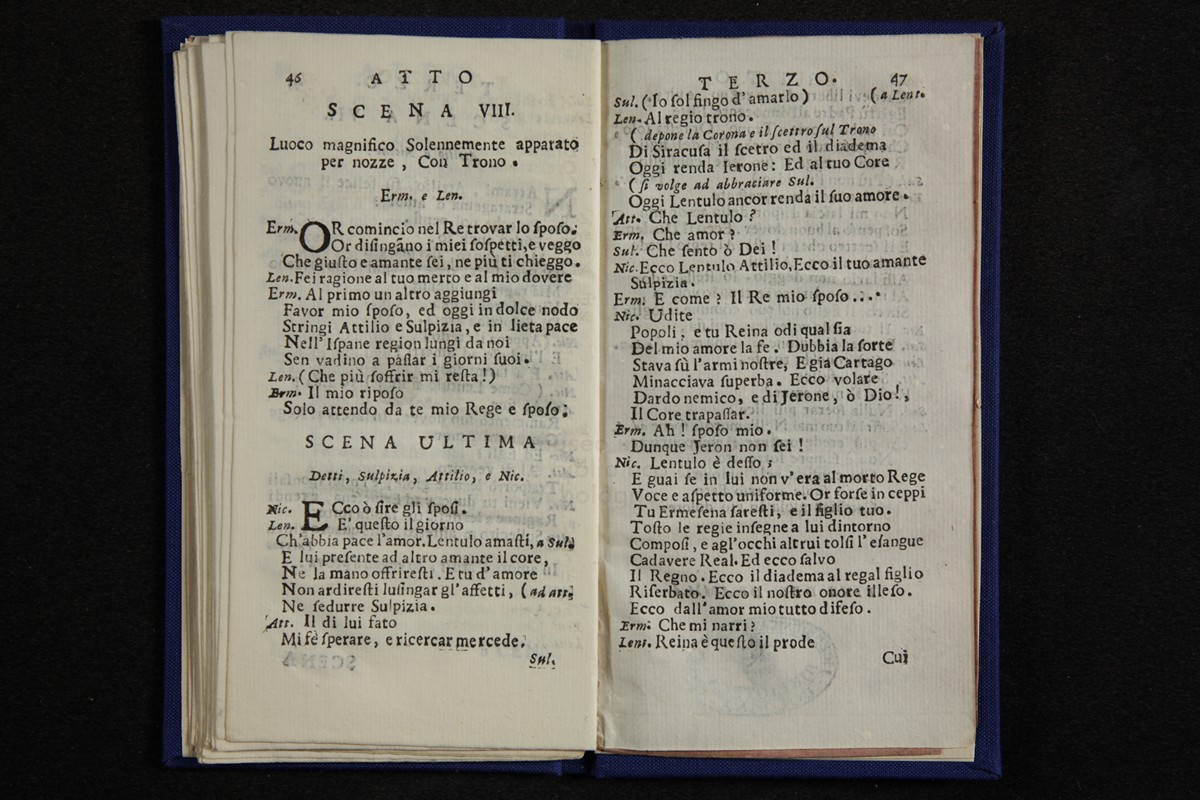 46 ATTO
SCENA VIII.
Luoco magnifico Solennemente apparato
per nozze, Con Trono.
Erm. e Len.
Erm. OR comincio nel Re trovar lo ſpoſo:
Or diſingãno i miei ſoſpetti, e veggo
Che giuſto e amante ſei, ne più ti chieggo.
Len. Fei ragione al tuo merto e al mio dovere
Erm. Al primo un altro aggiungi
Favor mio ſpoſo, ed oggi in dolce nodo
Stringi Attilio e Sulpizia, e in lieta pace
Nell'Iſpane region lungi da noi
Sen vadino a paſſar i giorni ſuoi.
Len. (Che più ſoffrir mi reſta!)
Erm. Il mio ripoſo
Solo attendo da te mio Rege e ſpoſo.
SCENA ULTIMA
Detti, Sulpizia, Attilio, e Nic.
Nic. ECco ò ſire gli ſpoſi.
Len. E' queſto il giorno
Ch'abbia pace l'amor. Lentulo amaſti, a Sul.
E lui preſente ad altro amante il core,
Ne la mano offrireſti. E tu d'amore
Non ardireſti luſingar gl'affetti, (ad att.
Ne ſedurre Sulpizia.
Att. Il di lui fato
Mi fè ſperare, e ricercar mercede.
Sul.
TERZO. 47
Sul. (Io ſol fingo d'amarlo) (a Lent.
Len. Al regio trono.
( depone la Corona e il ſcettro ſul Trono
Di Siracuſa il ſcetro ed il diadema
Oggi renda Ierone: Ed al tuo Core
(ſi volge ad abbraciare Sul.
Oggi Lentulo ancor renda il ſuo amore.
Att. Che Lentulo?
Erm. Che amor?
Sul. Che ſento ò Dei!
Nic. Ecco Lentulo Attilio. Ecco il tuo amante
Sulpizia.
Erm. E come? Il Re mio ſpoſo...
Nic. Udite
Popoli, e tu Reina odi qual ſia
Del mio amore la fe. Dubbia la ſorte
Stava ſù l'armi noſtre, E già Cartago
Minacciava ſuperba. Ecco volare
Dardo nemico, e di Jerone, ò Dio!,
Il Core trapaſſar.
Erm. Ah! ſpoſo mio.
Dunque Jeron non ſei!
Nic. Lentulo è deſſo;
E guai ſe in lui non v'era al morto Rege
Voce e aſpetto uniforme. Or forſe in ceppi
Tu Ermeſena ſareſti, e il figlio tuo.
Toſto le regie inſegne a lui dintorno
Compoſi, e agl'occhi altrui tolſi l'eſangue
Cadavere Real. Ed ecco ſalvo
Il Regno. Ecco il diadema al regal figlio
Riſerbato. Ecco il noſtro onore illeſo.
Ecco dall'amor mio tutto difeſo.
Erm. Che mi narri?
Lent. Reina è queſto il prode
Cui